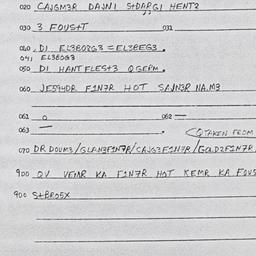 020 CAJGM3R DAJNJ S+DARGJ HENT2
030 3 FOUS+T 031
040 DJ EL3BO2G3 = EL3BEG3.
041 EL3BOG3
050 DJ HANTFLES+3 QSERM.
060 JES94DR F1N7R HOT SAJN3R NA.M3
061 0 062 —
063 —
(QTAKEN FROM
070 DR DOUM3/GLAN3F1N7R/CAJG3F1N7R/GOLD2F1N7R.
900 QV VEMR KA F1N7R HOT KEMR KA FOUS
900 S+BRO5X